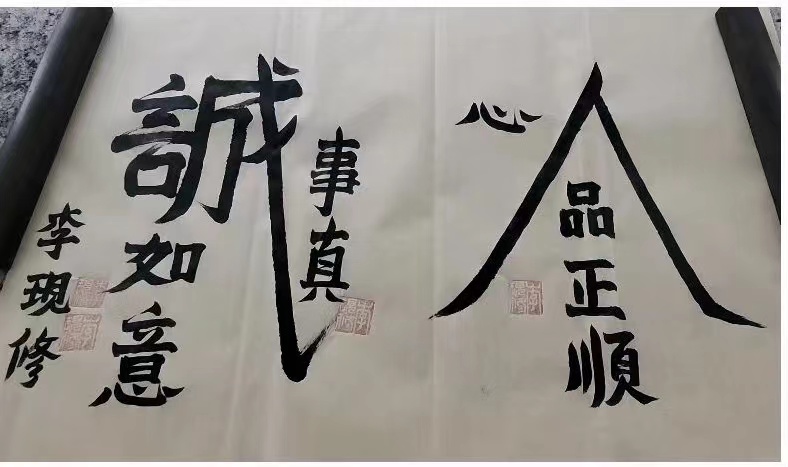 人品正順
心
事真
誠如意
李現修